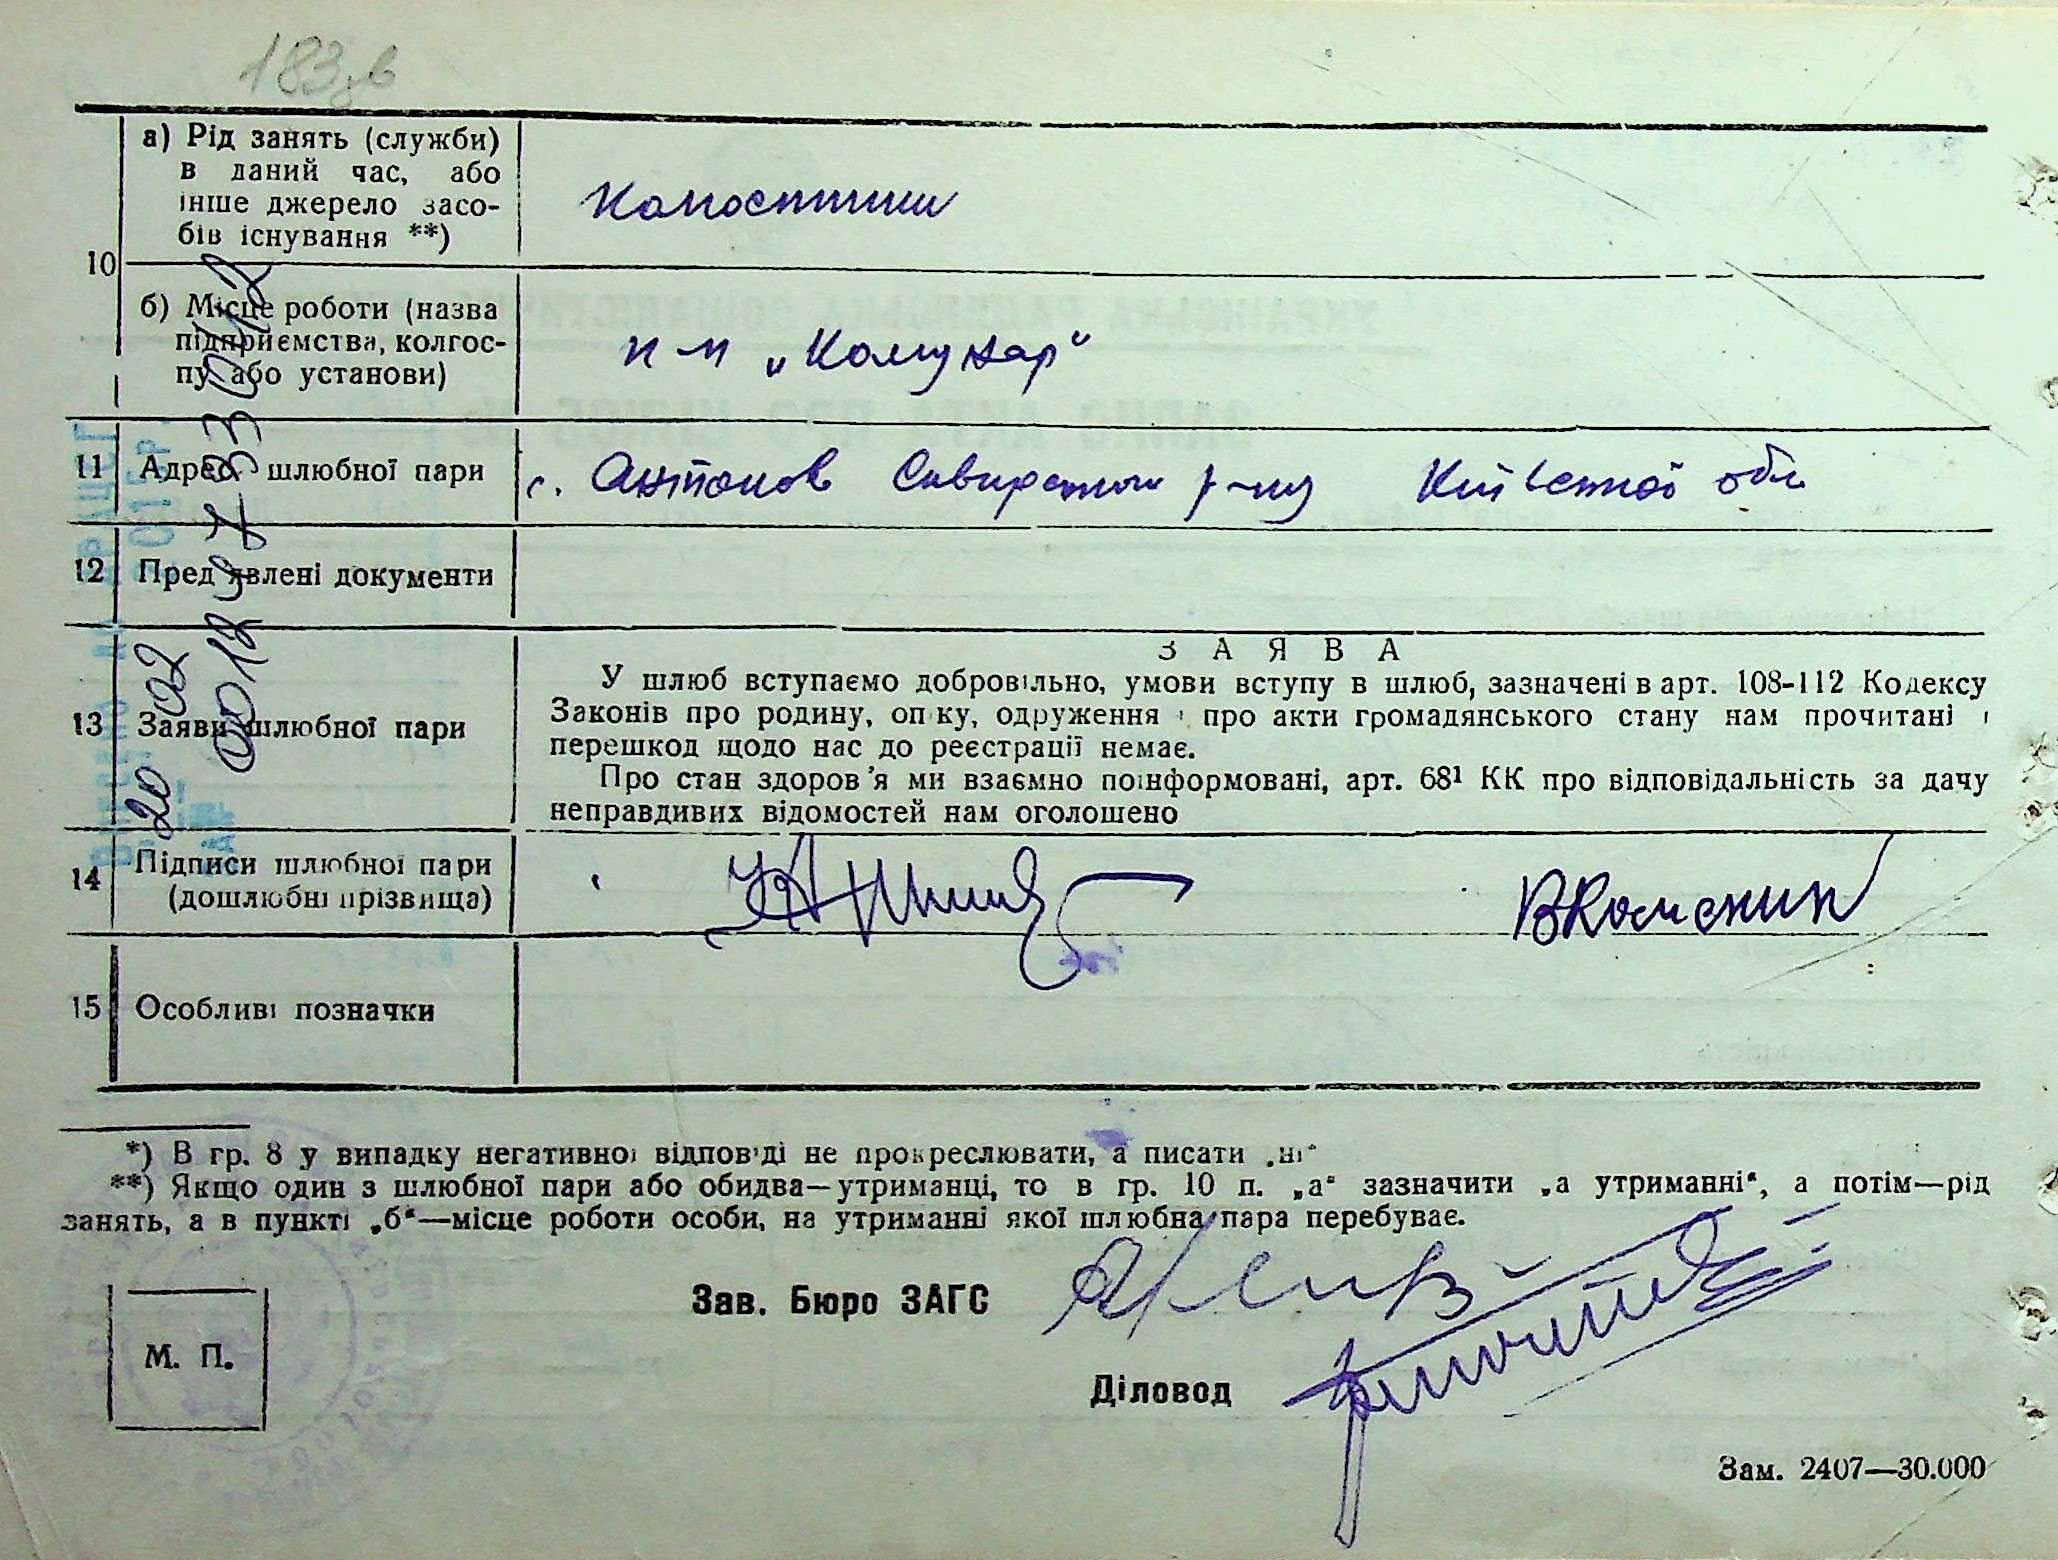 183зв
а) Рід занять (служби)
в даний час, або
інше джерело засо-
бів існування **)
10
б) Місце роботи (назва
підприємства, колгос-
пу або установи)
к-п „Комунар"
11 Адрес шлюбної пари с. Антонов Сквирського р-ну Київської обл
12 Пред'явлені документи
13 Заяви шлюбної пари
З А Я В А
У шлюб вступаємо добровільно, умови вступу в шлюб, зазначені в арт. 108-112 Кодексу
Законів про родину, опіку, одруження і про акти громадянського стану нам прочитані і
перешкод щодо нас до реєстрації немає.
Про стан здоров'я ми взаємно поінформовані, арт. 68¹ КК про відповідальність за дачу
неправдивих відомостей нам оголошено
14 Підписи шлюбної пари
(дошлюбні прізвища)
15 Особливі позначки
*) В гр. 8 у випадку негативної відповіді не прокреслювати, а писати „ні"
**) Якщо один з шлюбної пари або обидва—утриманці, то в гр. 10 п. „а" зазначити „а утриманні", а потім—рід
занять, а в пункті „б"—місце роботи особи, на утриманні якої шлюбна пара перебуває.
Зав. Бюро ЗАГС
М. П.
Діловод
Зам. 2407—30.000